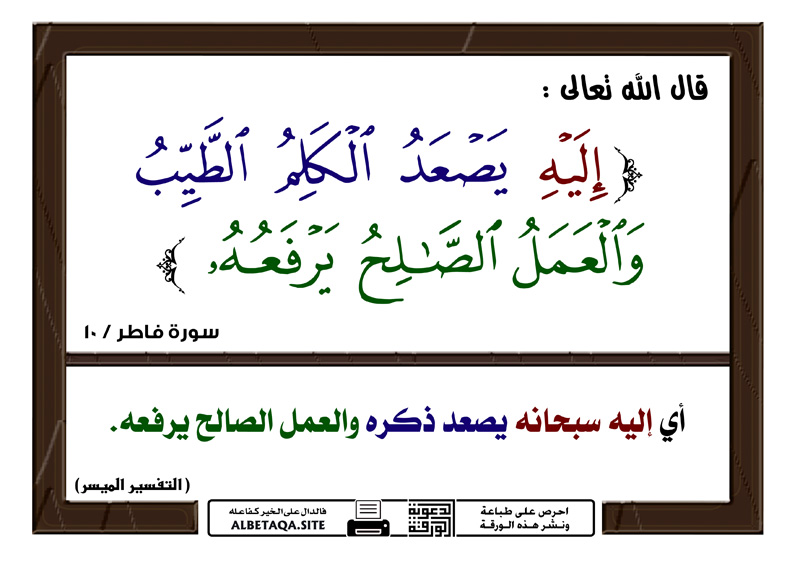 قال الله تعالى :
﴿ إِلَيْهِ يَصْعَدُ ٱلْكَلِمُ ٱلطَّيِّبُ
وَٱلْعَمَلُ ٱلصَّٰلِحُ يَرْفَعُهُۥ ﴾
سورة فاطر / ١٠
أي إليه سبحانه يصعد ذكره والعمل الصالح يرفعه.
(التفسير الميسر)
احرص على طباعة
ونشر هذه الورقة
الورقة الدعوية
فالدال على الخير كفاعله
ALBETAQA.SITE